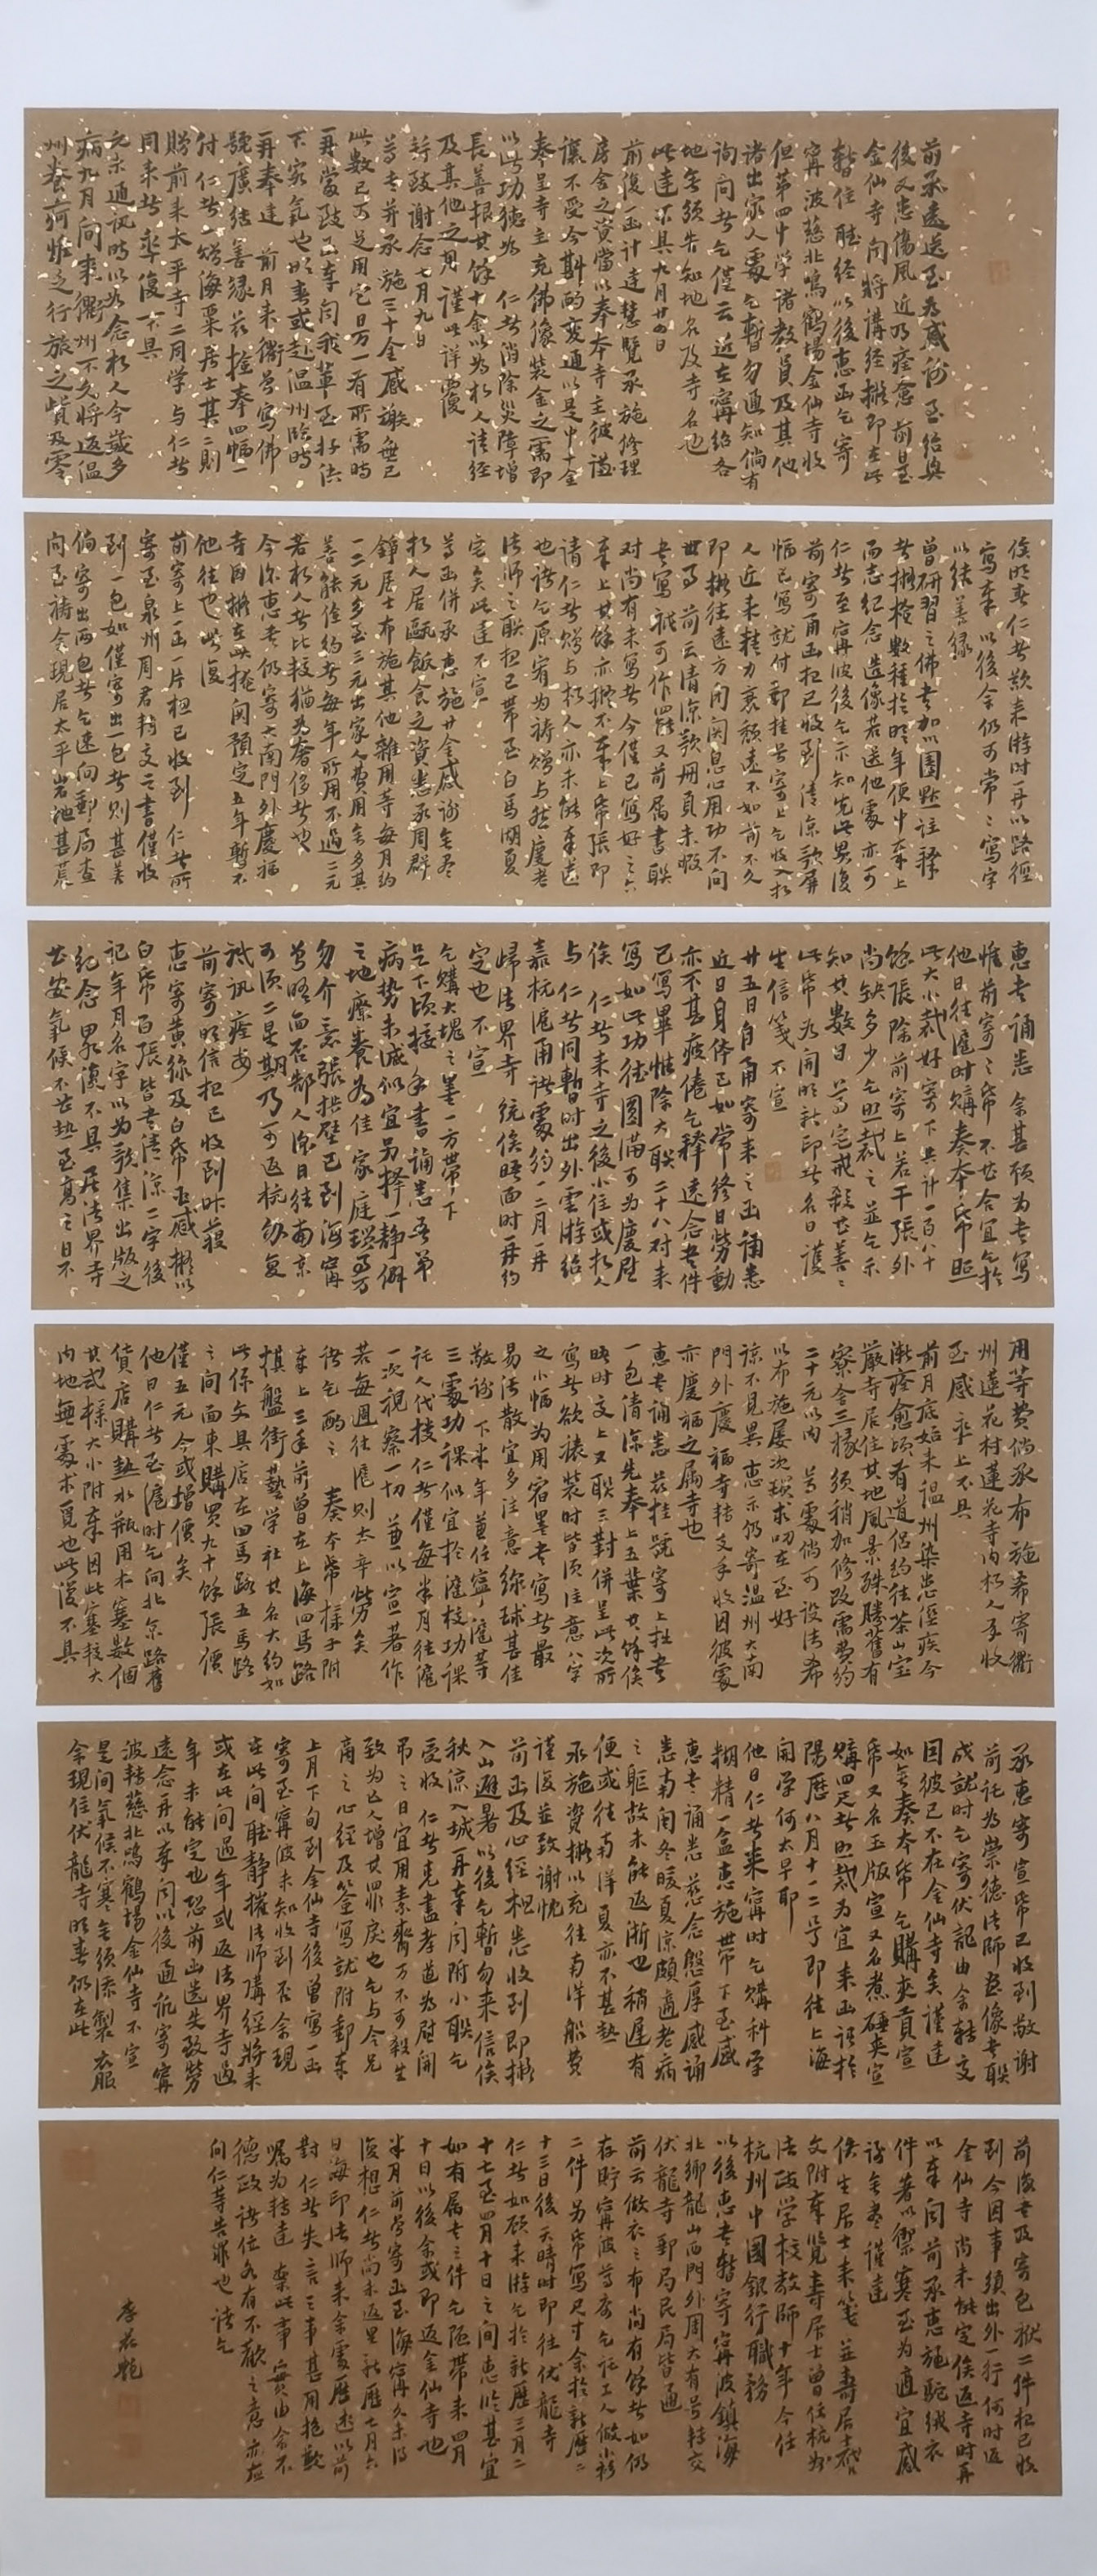 前承遠送至為感謝至紹興
後又患傷風近乃痊愈前星
金仙寺聞將講經擬即在此
暫住聽經以後惠函乞寄
寧波慈北鳴鶴場金仙寺收
但第四中學諸教員及其他
諸出家人處乞暫勿通知倘有
詢問者乞僅云近在寧紹各
地無須告知地名及寺名也
此達不具九月廿四日
前復一函計達慧覽承施修理
房舍之資當以奉本寺主彼謙
讓不受今斟酌變通以是中十金
奉呈寺主充佛像裝金之需即
以此功德為 仁者消除災障增
長善根其餘十金以為朽人請經
及其他之用謹此詳覆
并致謝念七月九日
尊書并承施三十金感謝無已
此數已可足用它日萬一有所需時
再當致函奉聞我輩至好決
不客氣也明春或赴溫州臨時
再奉達 前月來衢曾寫佛
號廣結善緣茲撿奉四幅一
付 仁者一贈海粟居士其二則
贈前來太平寺二同學與仁者
同來者 率復不具
久未通訊時以為念朽人今歲多
病九月間來衢州不久將返溫
州養疴惟是行旅之資及零
俟明春仁者款來游時再以路徑
寫奉以後余仍可常常寫字
以結善緣
曾研習之佛書加以圈點注釋
者擬撿數種於明年便中奉上
而志紀念造像若送他處亦可
仁者至寧波後乞示知先此奉復
前寄甬函扣已收到清涼歌屏
幅已寫就付郵挂号寄上乞收入朽
人近來精力衰頹遠不如前不久
即擬往遠方閉關息心用功不問
世事前云清涼歌冊頁未暇
書寫祇可作罷又前屬書聯
對尚有未寫者今僅已寫好之六
奉上其餘亦擬不奉上帋張即
請仁者贈与朽人亦未能奉還
也諸乞原宥為禱贈与然慶老
法師之聯扣已帶至白馬湖夏
宅矣此達不宣
尊函併承惠施廿金感謝無盡
朽人居甌飯食之資悉承周群
錚居士布施其他雜用等每月約
一二元多至三元出家人費用無多其
善能儉約者每年所用不過二元
若朽人者比較猶為奢侈者也
今後惠書仍寄大南門外慶福
寺因擬在此掩關預定五年暫不
他往也此復
前寄上一函一片扣已收到 仁者所
寄至泉州周君轉交之書僅收
到一包如僅寄出一包者則甚善
倘寄出兩包者乞速向郵局查
問至禱余現居太平岩池甚荒
惠書誦悉 余甚願為書寫
惟前寄之帋不甚合宜乞於
他日往滬時購奏本帋照
此大小裁好寄下共計一百八十
餘張除前寄上若干張外
尚缺多少乞照裁之並乞示
知其數目 尊定戒殺甚善善
此帋為開明新印者名曰護
生信箋 不宣
廿五日自甬寄來之函誦悉
近日身體已如常終日勞動
亦不甚疲倦乞釋遠念書件
已寫畢惟除大聯二十八对未
寫如此功德圓滿可為慶慰
俟 仁者來寺之後小住或朽人
与仁者同暫時出外雲游紹
嘉杭滬甬諸處約一二月再
歸法界寺 統俟晤面時再約
定也不宣
乞購大塊之墨一方帶下
足下頃接手書誦悉吾弟
病勢未減似宜另擇一靜僻
之地療養為佳家庭瑣事万
勿介意張拱璧已到海寧
曾晤面否鄙人後日往南京
可須二星期乃可返杭匆复
祇訊痊安
前寄明信扣已收到昨獲
惠寄黃絲及白帋至感擬以
白帋百張皆書清涼二字後
記年月名字以為歌集出版之
紀念 眾復不具 居法界寺
甚安氣候不甚热至高之日不
用等費倘承布施希寄衢
州蓮花村蓮花寺内朽人手收
至感 率上不具
前月底始來溫州染患痎疾今
漸痊愈頃有道侶約往茶山宝
嚴寺居住其地風景殊勝舊有
寮舍三椽須稍加修改需費約
二十元以内 尊處倘可設法希
以布施屢次瑣求叨在至好
諒不見異惠示仍寄溫州大南
門外慶福寺轉交手收因彼處
亦慶福之屬寺也
惠書誦悉茲挂號寄上拙書
一包清涼先奉上五葉其餘俟
晤時交上又聯三對併呈此次所
寫者欲裱裝時皆須注意八字
之小幅為用宿墨書寫者最
易污散宜多注意線球甚佳
敬謝 下半年兼任寧滬等
三處功課似宜於滬校功課
託人代授仁者僅每半月往滬
一次視察一切兼以宣著作
若每週往滬則太辛勞矣
諸乞酌之 奏本帋樣子附
奉上三年前曾在上海四馬路
棋盤街藝学社其名大約如
此係文具店在四馬路五馬路
之間面東購買九十餘張價
僅五元今或增價矣
他日仁者至滬時乞向北京路舊
貨店購热水瓶用木塞數個
其式樣大小附奉因此塞較大
内地無處求覓也此復不具
承惠寄宣帋已收到敬謝
前託為崇德法師造像書聯
成就時乞寄伏龍由余轉交
因彼已不在金仙寺矣謹達
如無奏本帋乞購夾貢宣
帋又名玉版宣又名煮硾夾宣
購四尺者照裁為宜来函語於
陽歷八月十二号即往上海
開学何太早耶
他日仁者來寧時乞購科学
糊精一盒惠施帶下至感
惠書誦悉慈念慇厚感誦
悉南閩冬暖夏涼頗適老病
之軀故未能返浙也稍遲有
便或往南洋夏亦不甚熱
承施資擬以充往南洋船費
謹復並致謝忱
前函及心經扣悉收到即擬
入山避暑以後乞暫勿来信俟
秋涼入城再奉聞附小聯乞
受收 仁者克盡孝道為慰開
吊之日宜用素齋万不可殺生
致為亡人增其罪戾也乞与令兄
商之心經及签寫就附郵奉
上月下旬到金仙寺後曾寫一函
寄至寧波未知收到否余現
在此間聽靜權法師講經將来
或在此間過年或返法界寺過
年未能定也恐前函遺失致勞
遠念再以奉聞以後通訊寄寧
波轉慈北鳴鶴場金仙寺不宣
是間氣候不寒無須添製衣服
余現住伏龍寺明春仍在此
前復書及寄包袱二件扣已收
到今因事須出外一行何時返
金仙寺尚未能定俟返寺時再
以奉聞前承惠施駝絨衣
件著以禦寒至為適宜感
謝無盡謹達
俟生居士来箋並壽居士啓
文附奉覽壽居士曾任杭州
法政学校教師十年今任
杭州中國銀行職務
以後惠書暫寄寧波鎮海
北鄉龍山西門外周大有号轉交
伏龍寺郵局民局皆通
前云做衣之布尚有餘者如仍
存貯寧波尊處乞託工人做小衫
二件另帋寫尺寸余於新歷二
十三日後天晴時即往伏龍寺
仁者如願来游乞於新歷三月二
十七至四月十日之間惠臨甚宜
如有屬書之件乞随帶来四月
十日以後余或即返金仙寺也
半月前曾寄函至海寧久未得
復想 仁者尚未返里新歷七月六
日海印法師来余處歷述以前
對 仁者失言之事甚用抱歉
囑為轉達 案此事實由余不
德政諸位各有不歡之意亦应
向仁等告罪也 諸乞
李茂艷